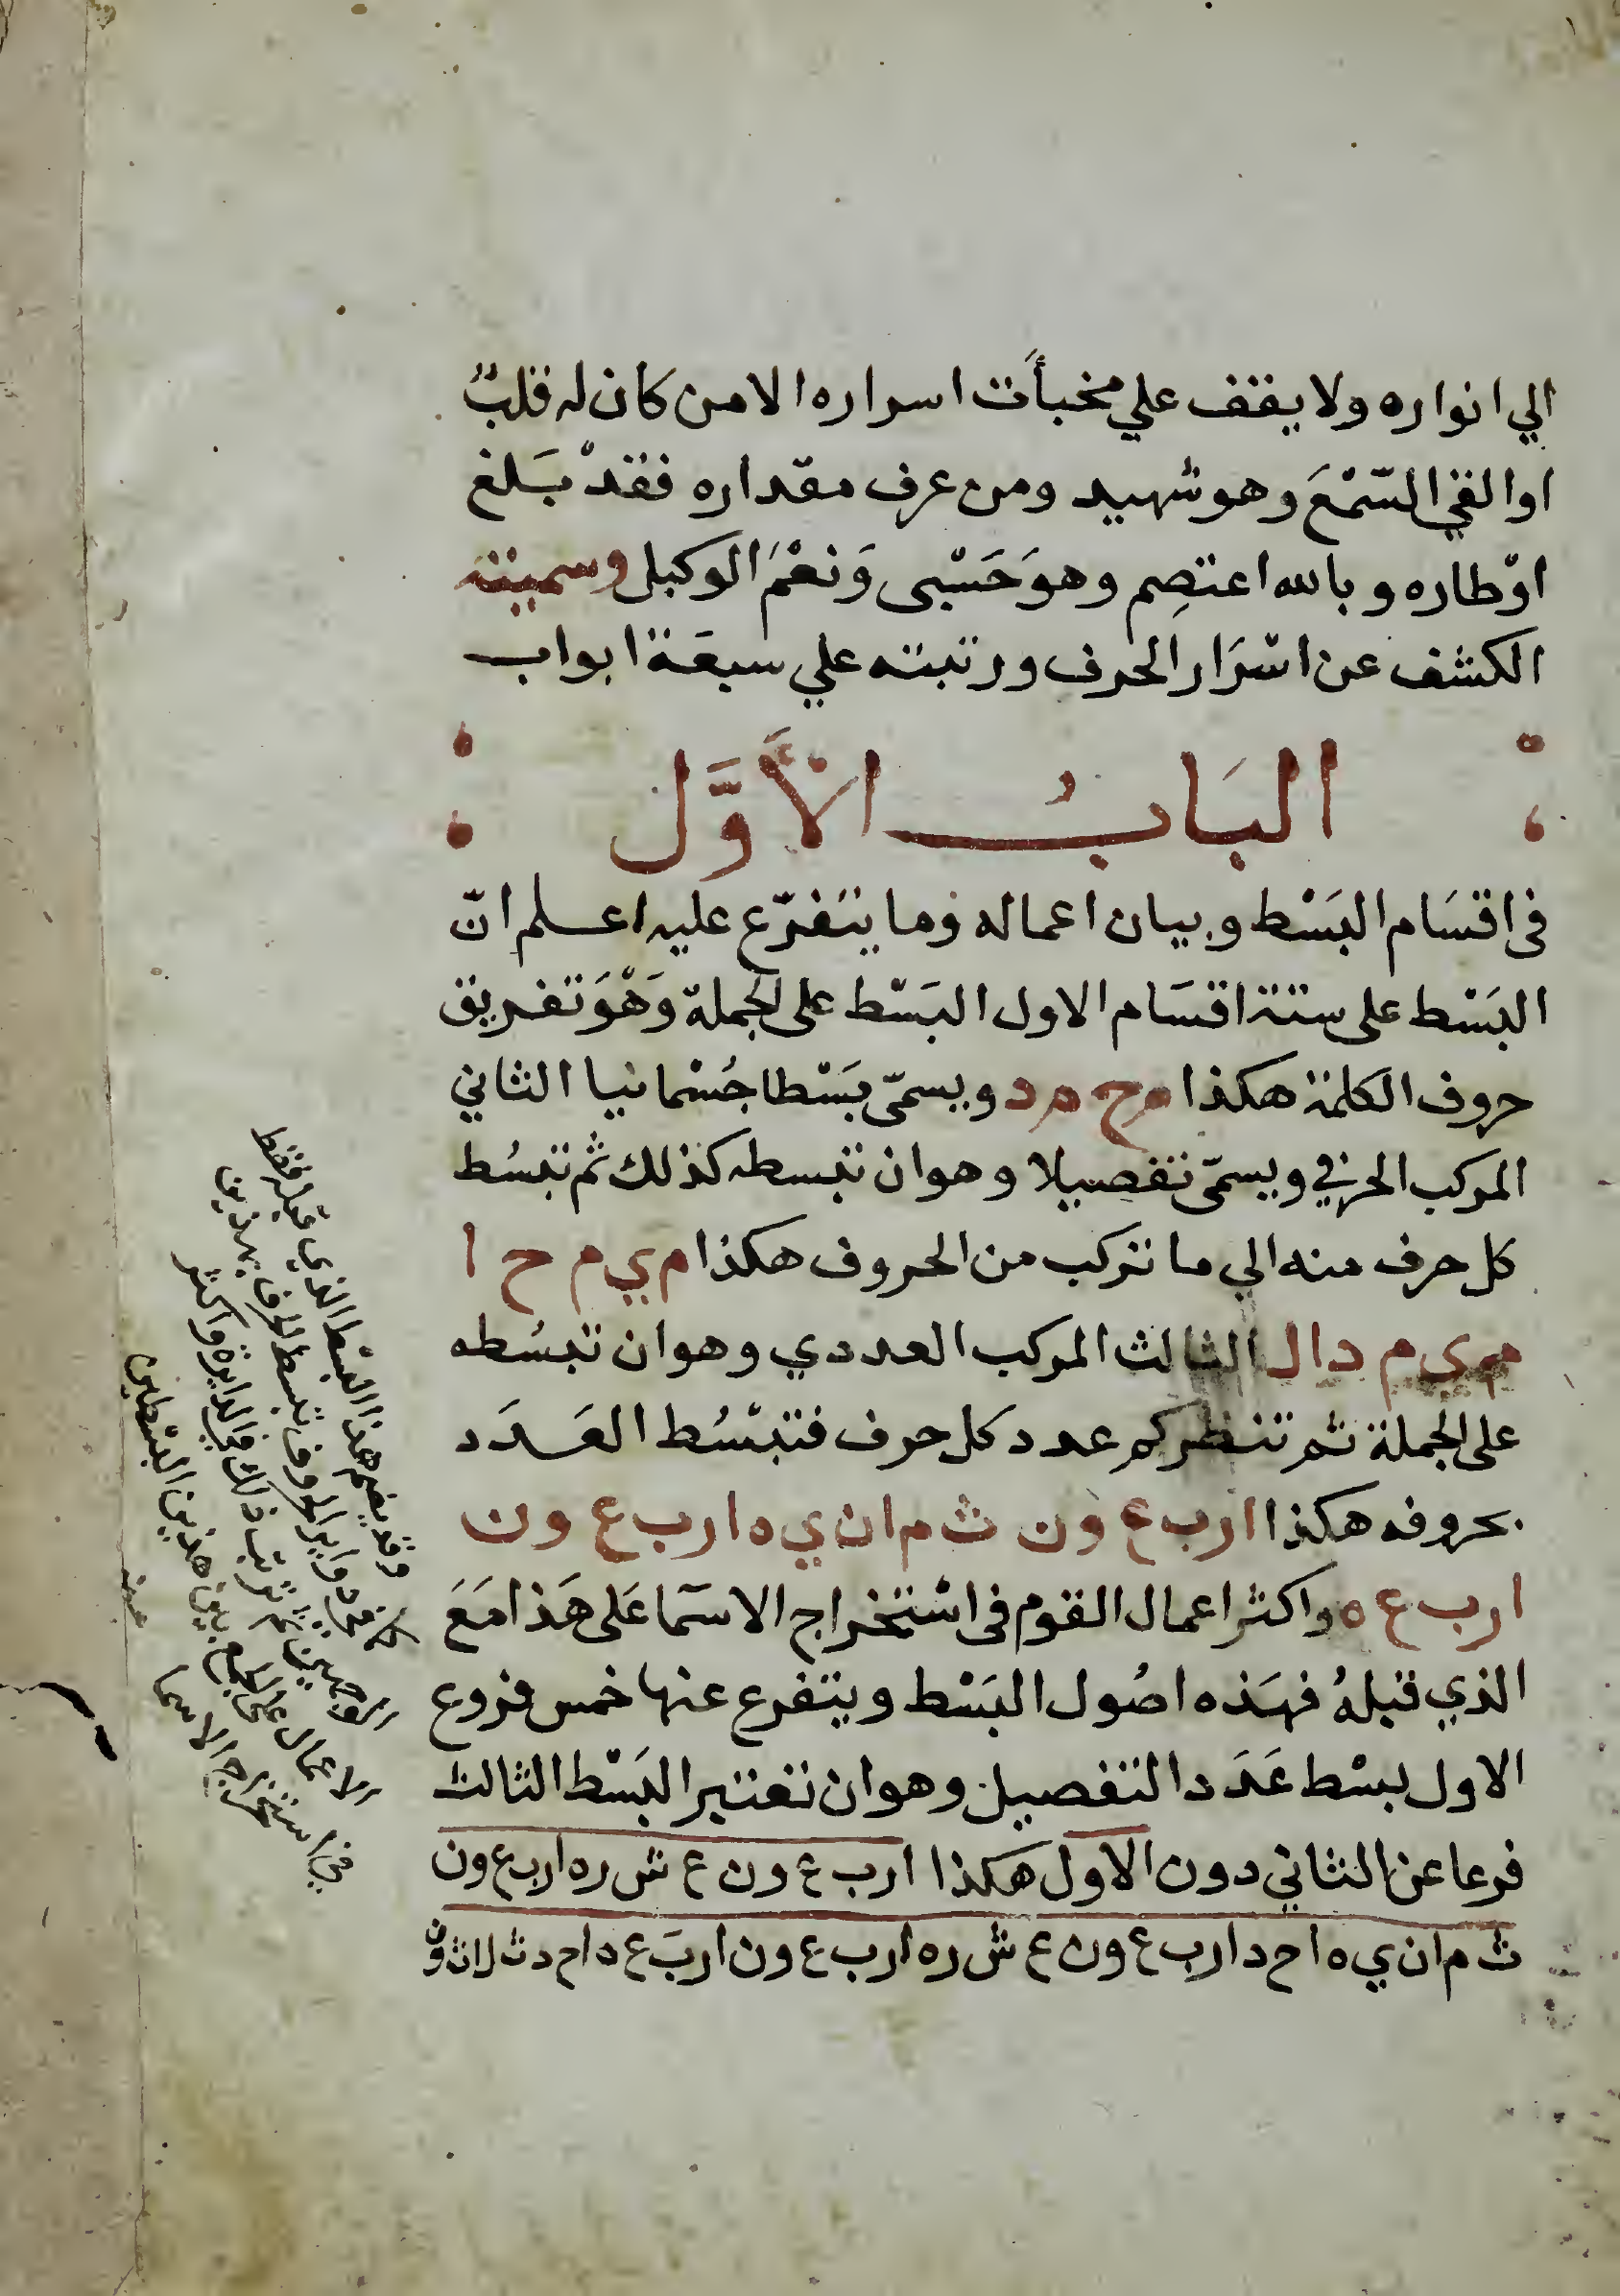 الي انواره ولا يقف علي مخبأت اسراره الا من كان له قلبٌ
او القي السّمْعَ وهو شهيد ومن عرف مقداره فقدْ بَلغ
اوْطاره وبالله اعتصِم وهوَ حَسْبى وَنعْمَ الوكيل وسميته
الكشف عن اسْرَار الحرف ورتبته علي سبعَة ابواب
البَابُ الأوَّل
فى اقسَام البَسْط وبيان اعماله وما يتفرّع عليه اعلم انّ
البَسْط على ستة اقسَام الاول البَسْط على الجملة وَهْوَ تفريق
حروف الكلمة هكذا م ح م د ويسمّى بَسْطا جُسْمانيا الثاني
المركب الحرفي ويسمّى تفصيلا وهو ان تبسطه كذلك ثم تبسُط
كل حرف منه الي ما تركب من الحروف هكذا م ي م ح ا
م ي م د ا ل الثالث المركب العددي وهو ان تبسُطه
على الجملة ثم تنظر كم عدد كل حرف فتبسُط العَدَد
بحروفه هكذا ا ر ب ع و ن ث م ا ن ي ه ا ر ب ع و ن
ا ر ب ع ه واكثر اعمال القوم فى اسْتخراج الاسمآ عَلى هَذا مَعَ
الذي قبلهُ فهَذه اصُول البَسْط ويتفرع عنها خمس فروع
الاول بسْط عَدَد التفصيل وهو ان تعتبر البَسْط الثالث
فرعا عن الثاني دون الاول هكذا ا ر ب ع و ن ع ش ر ه ا ر ب ع و ن
ث م ا ن ي ه ا ح د ا ر ب ع و ن ع ش ر ه ا ر ب ع و ن ا ر ب ع ه ا ح د ث ل ا ث و ن
وقد يضم هذا البسْط الذي قبله فقط
في دواير الحروف تبسط الحرف بهذين
الوجهين ثم ترتب ذلك في الدايرة واكثر
الاعمال على الجمع بين هذين البسْطين
في استخراج الاسما